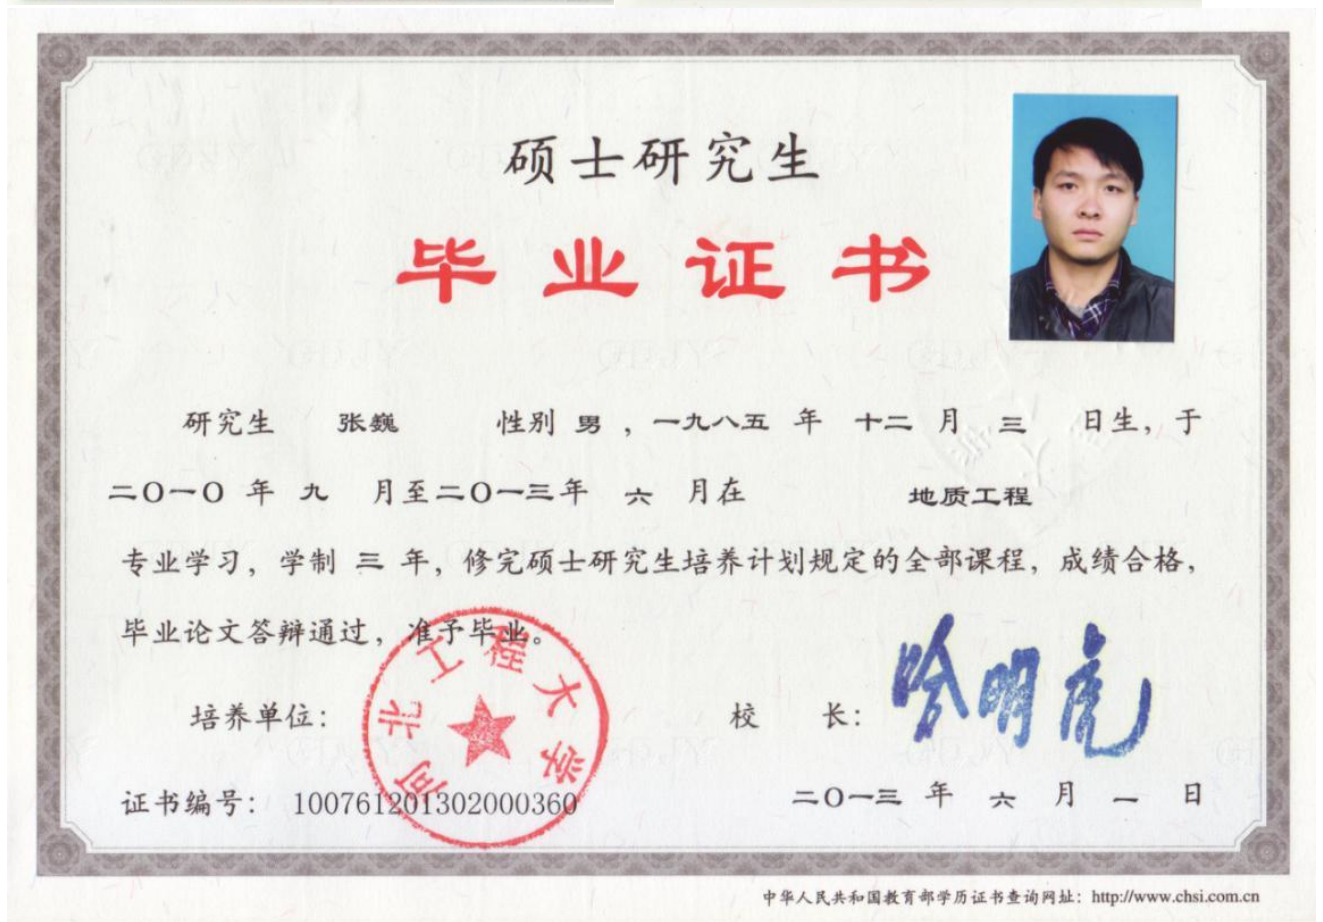 硕士研究生
毕业证书
研究生 张巍 性别 男 , 一九八五 年 十二 月 三 日生, 于
二〇一〇 年 九 月至二〇一三年 六 月在 地质工程
专业学习, 学制 三 年, 修完硕士研究生培养计划规定的全部课程, 成绩合格,
毕业论文答辩通过, 准予毕业。
河北工程大学
培养单位: 校 长: 哈明虎
证书编号: 100761201302000360 二〇一三 年 六 月 一 日
中华人民共和国教育部学历证书查询网址: http://www.chsi.com.cn